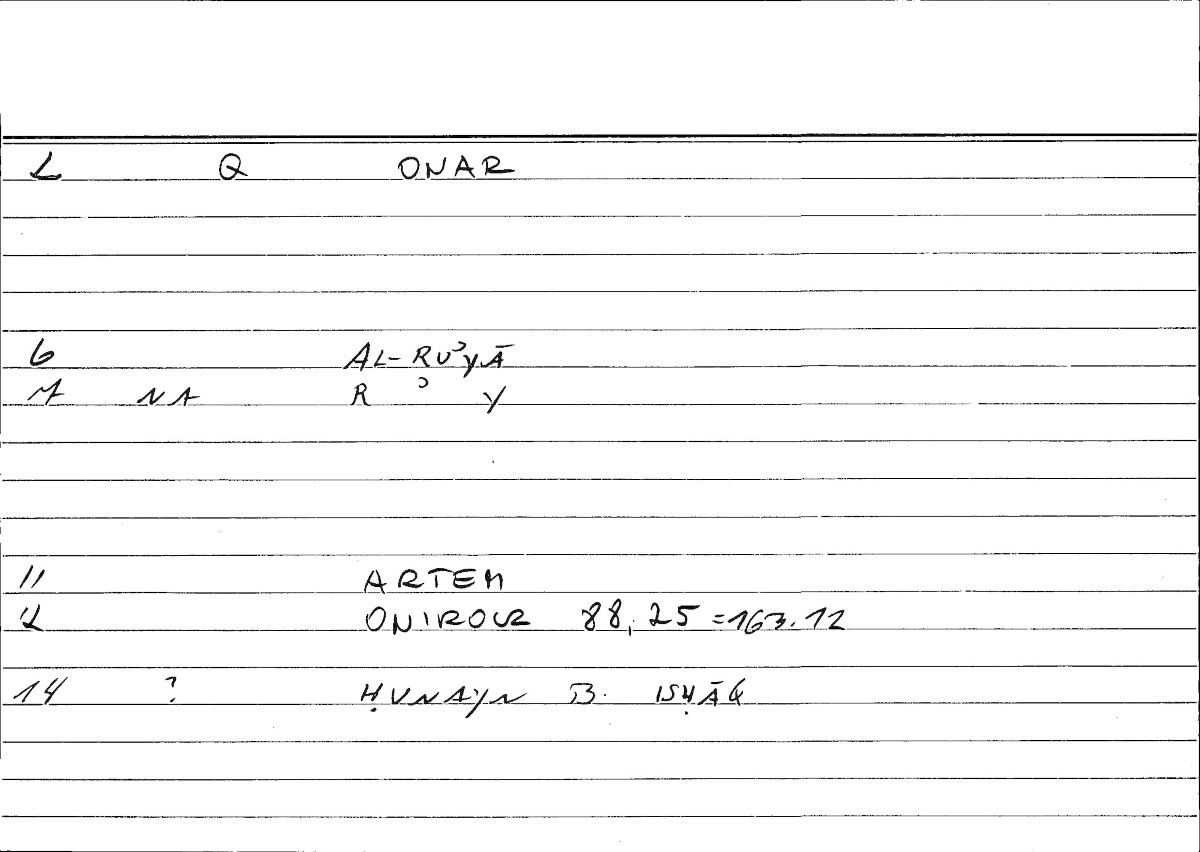 L Q ONAR
6 AL-RUʾYĀ
M NA R ʾ Y
11 ARTEM
ONIROCR 88, 25 =163.12
14 ? ḤUNAYN B. ISḤĀQ